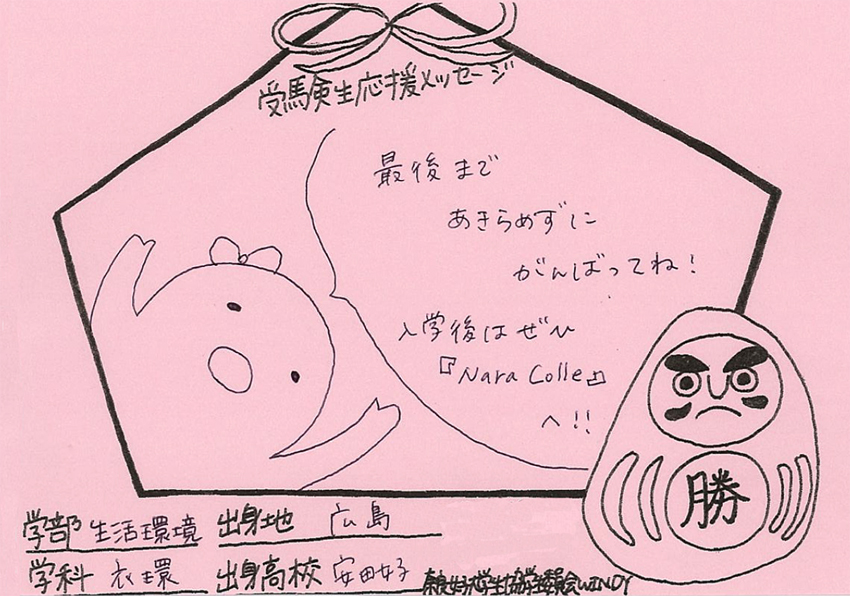 受験生応援メッセージ
最後まで
あきらめずに
がんばってね!
入学後はぜひ
『Nara Colle』
へ!!
勝
学部 生活環境 出身地 広島
学科 衣環 出身高校 安田女子
奈良女子大学生協学生委員会WINDY